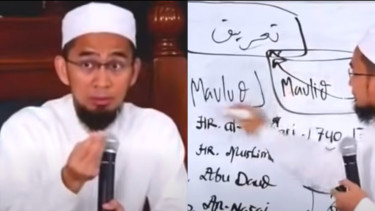 تخريج
Maulud Maulid
HR. al-
HR. Muslim
Abu Daud
An-Nasai